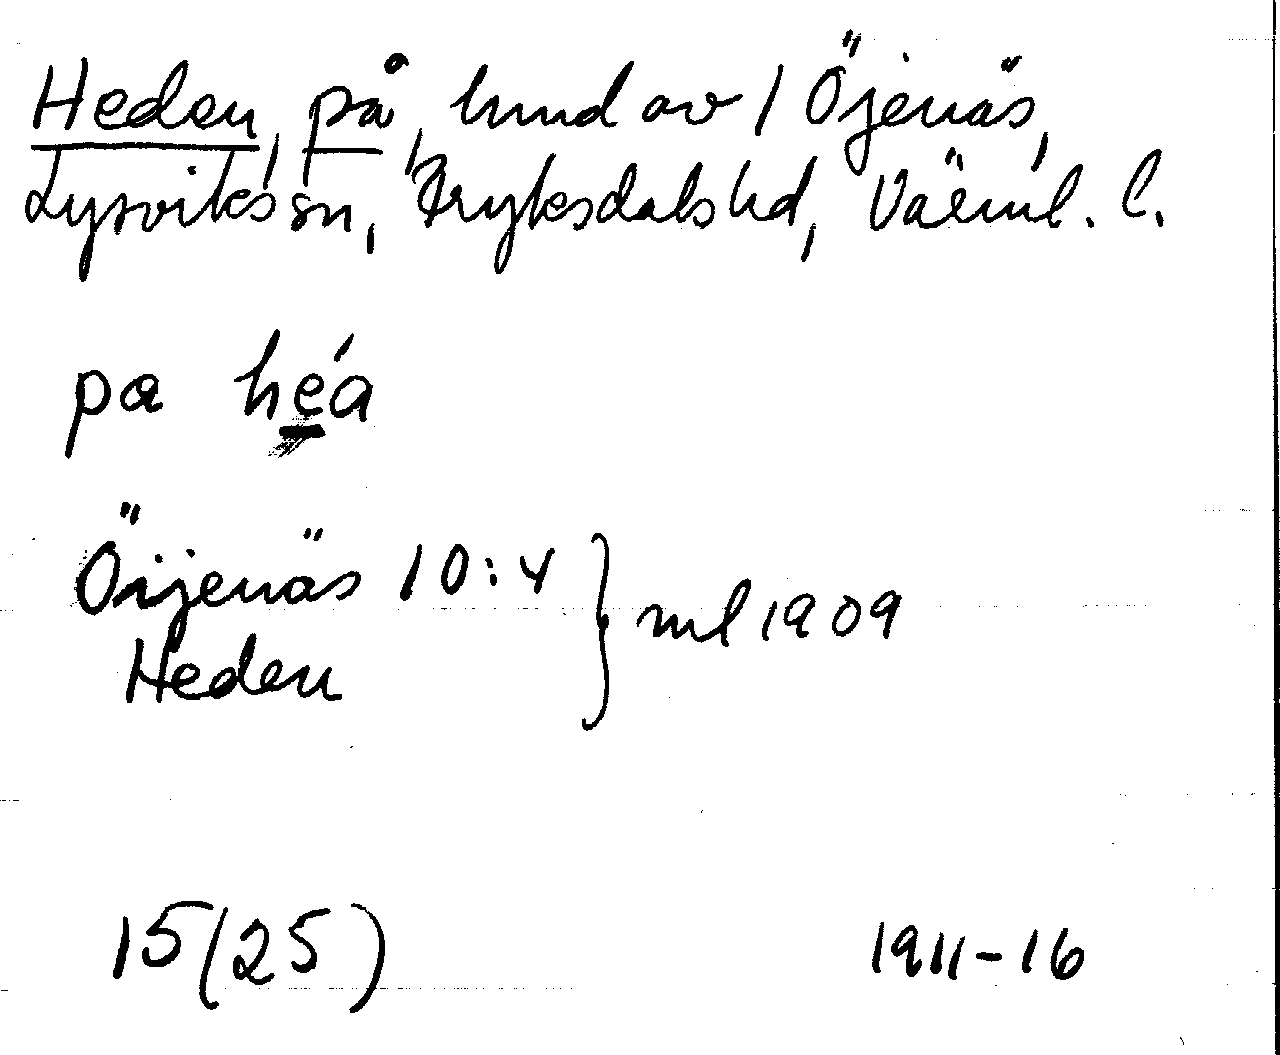 Heden, på, hmd av 1 Öjenäs,
Lysviks sn, Fryksdals hd, Värml. l.
pa heá
Öijenäs 10:4 } ml 1909
Heden
15(25) 1911-16